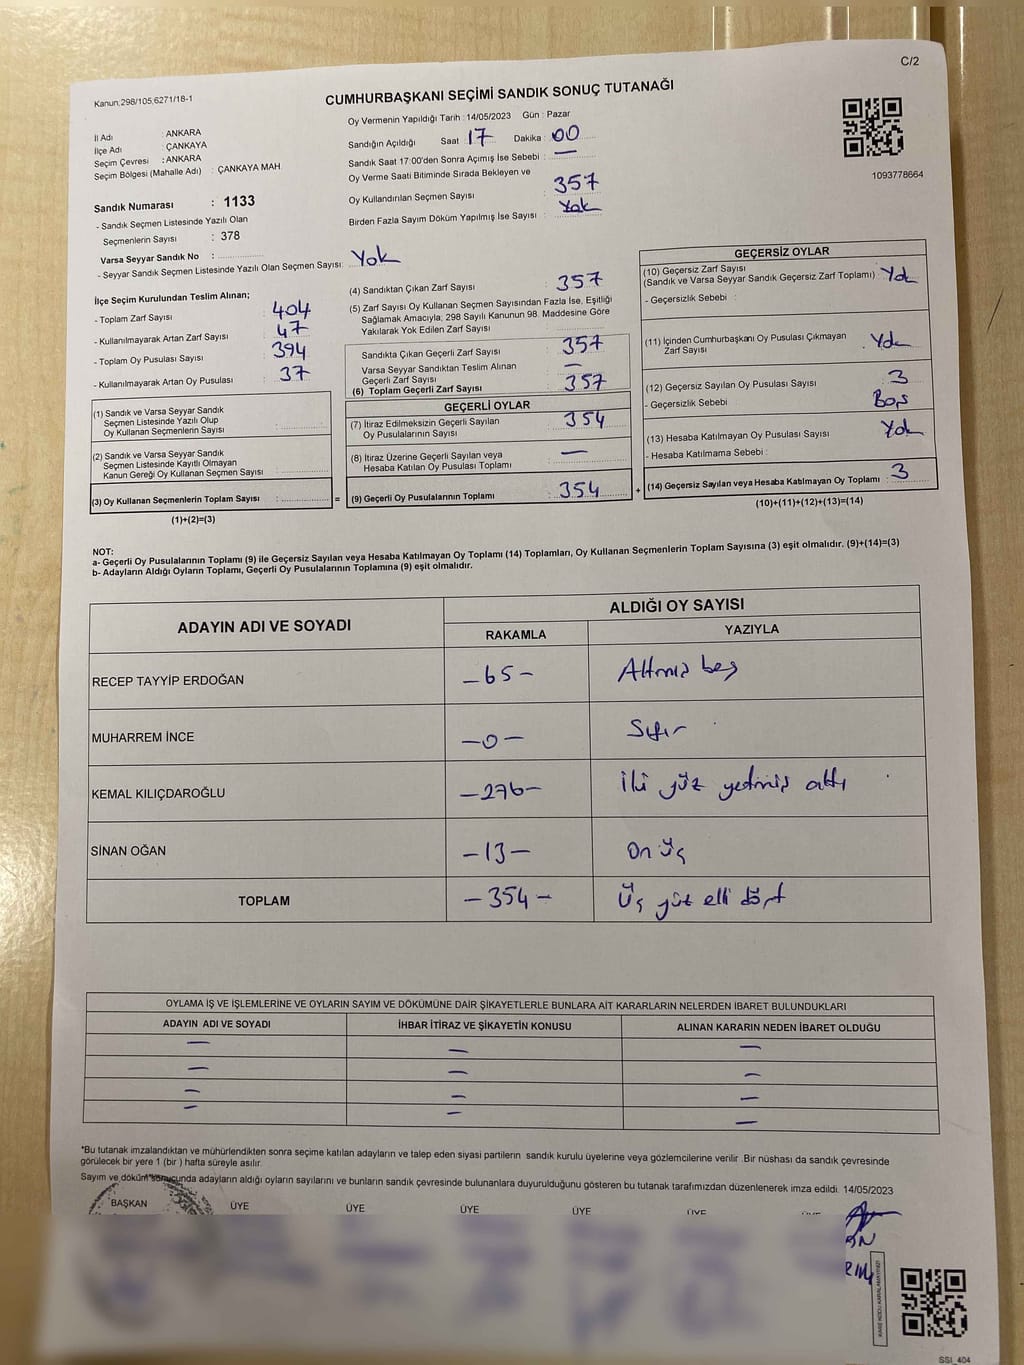 C/2
Kanun:298/105;6271/18-1
CUMHURBAŞKANI SEÇİMİ SANDIK SONUÇ TUTANAĞI
İl Adı : ANKARA
İlçe Adı : ÇANKAYA
Seçim Çevresi : ANKARA
Seçim Bölgesi (Mahalle Adı) : ÇANKAYA MAH.
Oy Vermenin Yapıldığı Tarih : 14/05/2023 Gün : Pazar
Sandığın Açıldığı Saat 17 Dakika : 00
Sandık Saat 17:00'den Sonra Açımış İse Sebebi : —
Oy Verme Saati Bitiminde Sırada Bekleyen ve
Oy Kullandırılan Seçmen Sayısı : 357
Birden Fazla Sayım Döküm Yapılmış İse Sayısı : Yok
1093778664
Sandık Numarası : 1133
- Sandık Seçmen Listesinde Yazılı Olan
Seçmenlerin Sayısı : 378
Varsa Seyyar Sandık No :
- Seyyar Sandık Seçmen Listesinde Yazılı Olan Seçmen Sayısı: Yok
İlçe Seçim Kurulundan Teslim Alınan;
- Toplam Zarf Sayısı : 404
- Kullanılmayarak Artan Zarf Sayısı : 47
- Toplam Oy Pusulası Sayısı : 394
- Kullanılmayarak Artan Oy Pusulası : 37
(1) Sandık ve Varsa Seyyar Sandık
Seçmen Listesinde Yazılı Olup
Oy Kullanan Seçmenlerin Sayısı :
(2) Sandık ve Varsa Seyyar Sandık
Seçmen Listesinde Kayıtlı Olmayan
Kanun Gereği Oy Kullanan Seçmen Sayısı :
(3) Oy Kullanan Seçmenlerin Toplam Sayısı :
(1)+(2)=(3)
(4) Sandıktan Çıkan Zarf Sayısı : 357
(5) Zarf Sayısı Oy Kullanan Seçmen Sayısından Fazla İse, Eşitliği
Sağlamak Amacıyla; 298 Sayılı Kanunun 98. Maddesine Göre
Yakılarak Yok Edilen Zarf Sayısı :
Sandıkta Çıkan Geçerli Zarf Sayısı : 357
Varsa Seyyar Sandıktan Teslim Alınan
Geçerli Zarf Sayısı : —
(6) Toplam Geçerli Zarf Sayısı : 357
=
GEÇERLİ OYLAR
(7) İtiraz Edilmeksizin Geçerli Sayılan
Oy Pusulalarının Sayısı : 354
(8) İtiraz Üzerine Geçerli Sayılan veya
Hesaba Katılan Oy Pusulası Toplamı : —
(9) Geçerli Oy Pusulalarının Toplamı : 354
+
GEÇERSİZ OYLAR
(10) Geçersiz Zarf Sayısı
(Sandık ve Varsa Seyyar Sandık Geçersiz Zarf Toplamı) : Yok
- Geçersizlik Sebebi :
(11) İçinden Cumhurbaşkanı Oy Pusulası Çıkmayan
Zarf Sayısı : Yok
(12) Geçersiz Sayılan Oy Pusulası Sayısı : 3
- Geçersizlik Sebebi : Boş
(13) Hesaba Katılmayan Oy Pusulası Sayısı : Yok
- Hesaba Katılmama Sebebi :
(14) Geçersiz Sayılan veya Hesaba Katılmayan Oy Toplamı : 3
(10)+(11)+(12)+(13)=(14)
NOT:
a- Geçerli Oy Pusulalarının Toplamı (9) ile Geçersiz Sayılan veya Hesaba Katılmayan Oy Toplamı (14) Toplamları, Oy Kullanan Seçmenlerin Toplam Sayısına (3) eşit olmalıdır. (9)+(14)=(3)
b- Adayların Aldığı Oyların Toplamı, Geçerli Oy Pusulalarının Toplamına (9) eşit olmalıdır.
ADAYIN ADI VE SOYADI
ALDIĞI OY SAYISI
RAKAMLA YAZIYLA
RECEP TAYYİP ERDOĞAN -65- Altmış beş
MUHARREM İNCE -0- Sıfır
KEMAL KILIÇDAROĞLU -276- İki yüz yetmiş altı
SİNAN OĞAN -13- On üç
TOPLAM -354- Üç yüz elli dört
OYLAMA İŞ VE İŞLEMLERİNE VE OYLARIN SAYIM VE DÖKÜMÜNE DAİR ŞİKAYETLERLE BUNLARA AİT KARARLARIN NELERDEN İBARET BULUNDUKLARI
ADAYIN ADI VE SOYADI İHBAR İTİRAZ VE ŞİKAYETİN KONUSU ALINAN KARARIN NEDEN İBARET OLDUĞU
— — —
— — —
— — —
— — —
*Bu tutanak imzalandıktan ve mühürlendikten sonra seçime katılan adayların ve talep eden siyasi partilerin sandık kurulu üyelerine veya gözlemcilerine verilir. Bir nüshası da sandık çevresinde
görülecek bir yere 1 (bir) hafta süreyle asılır.
Sayım ve döküm sonucunda adayların aldığı oyların sayılarını ve bunların sandık çevresinde bulunanlara duyurulduğunu gösteren bu tutanak tarafımızdan düzenlenerek imza edildi. 14/05/2023
BAŞKAN ÜYE ÜYE ÜYE ÜYE ÜYE
KARE KODU KARALAMAYINIZ!
SSI_404